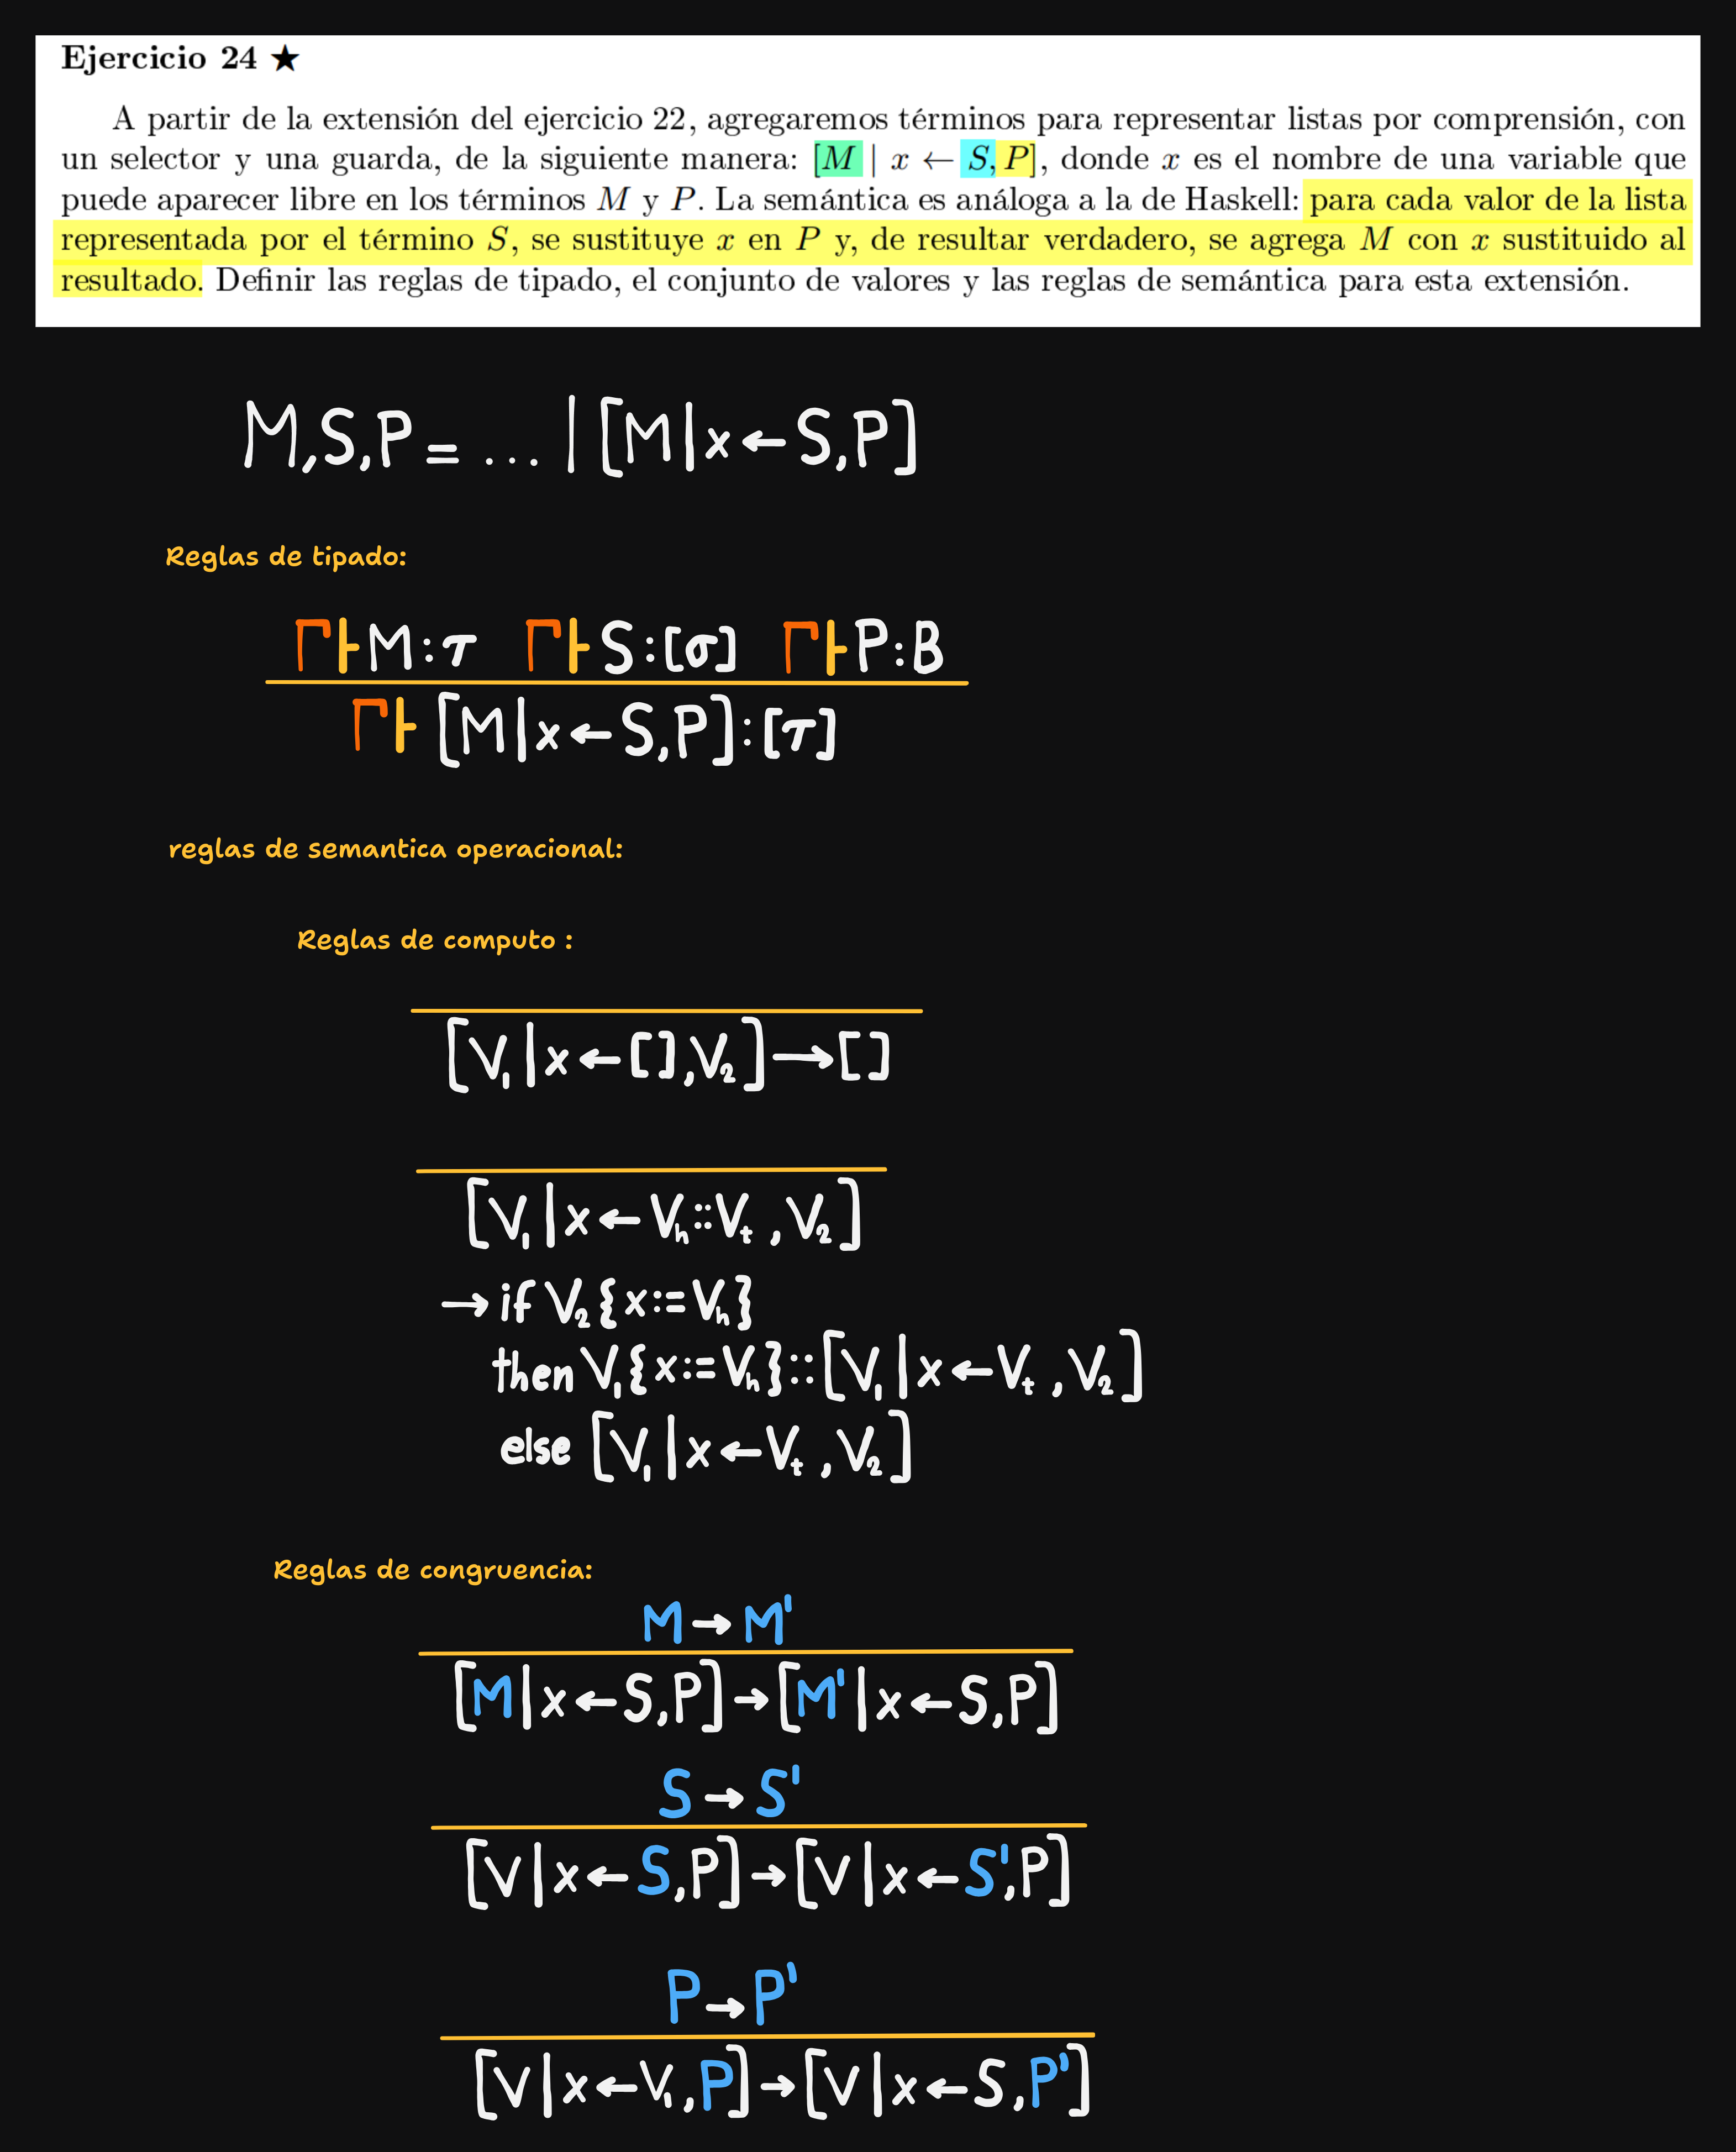 Ejercicio 24 ★
A partir de la extensión del ejercicio 22, agregaremos términos para representar listas por comprensión, con
un selector y una guarda, de la siguiente manera: [M | x ← S, P], donde x es el nombre de una variable que
puede aparecer libre en los términos M y P. La semántica es análoga a la de Haskell: para cada valor de la lista
representada por el término S, se sustituye x en P y, de resultar verdadero, se agrega M con x sustituido al
resultado. Definir las reglas de tipado, el conjunto de valores y las reglas de semántica para esta extensión.
M,S,P = ... | [M|x←S,P]
Reglas de tipado:
Γ⊢M:τ Γ⊢S:[σ] Γ⊢P:B
Γ⊢[M|x←S,P]:[τ]
reglas de semantica operacional:
Reglas de computo :
[V₁|x←[],V₂]→[]
[V₁|x←Vₕ::Vₜ,V₂]
→ if V₂{x:=Vₕ}
then V₁{x:=Vₕ}::[V₁|x←Vₜ,V₂]
else [V₁|x←Vₜ,V₂]
Reglas de congruencia:
M→M'
[M|x←S,P]→[M'|x←S,P]
S→S'
[V|x←S,P]→[V|x←S',P]
P→P'
[V|x←V₁,P]→[V|x←S,P']